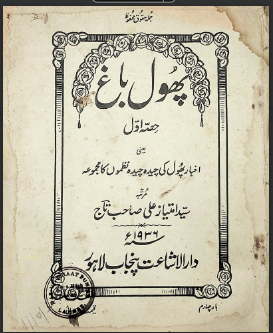 جملہ حقوق محفوظ
پھول باغ
حصہ اول
یعنی
اخبار پھول کی چیدہ چیدہ نظموں کا مجموعہ
مرتبہ
سید امتیاز علی صاحب تاج
۱۹۳۶ء
دارالاشاعت پنجاب لاہور
بار چہارم